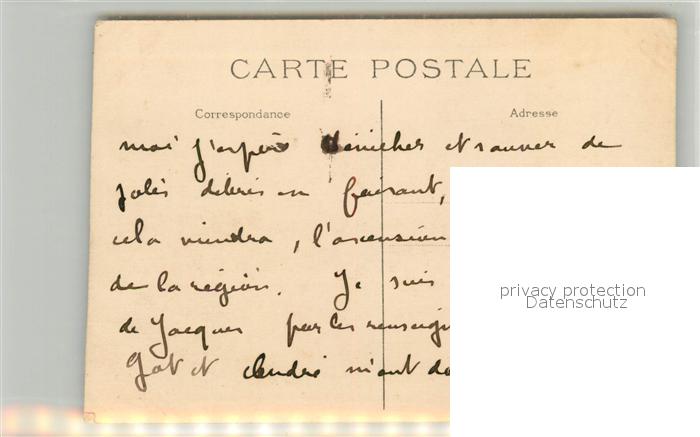 CARTE POSTALE
Correspondance Adresse
moi j'espère dénicher et sauver de
jolis débris en faisant,
cela viendra, l'ascension
de la région. Je suis
de Jacques par les renseign
Got et André m'ont do
privacy protection
Datenschutz